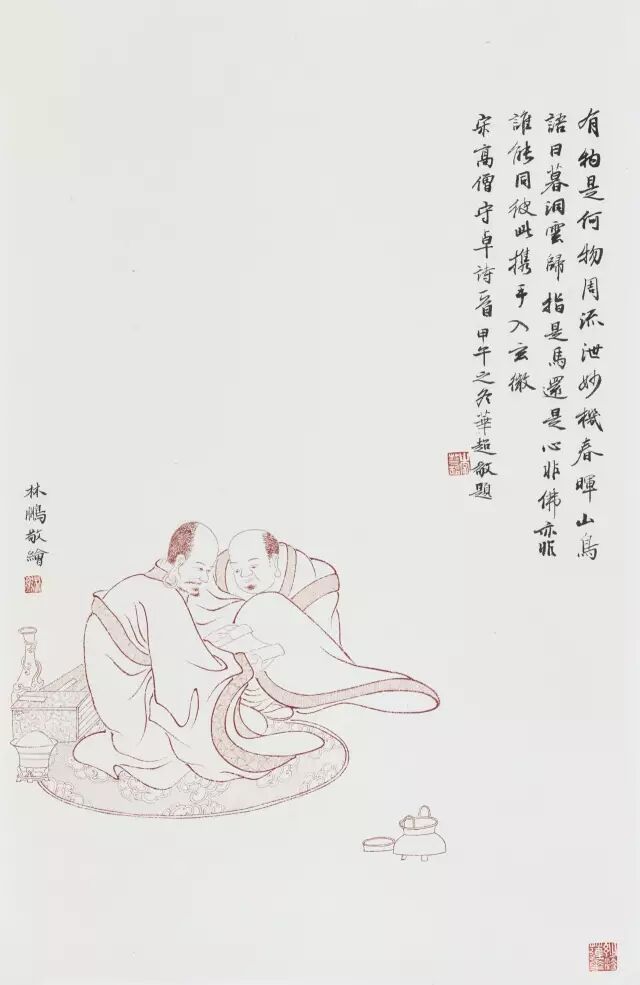 有物是何物周流泄妙機春暉山鳥
語日暮洞雲歸指是馬還是心非佛亦非
誰能同彼此攜手入玄微
宋高僧守卓詩一首甲午之冬華超敬題
林鵬敬繪